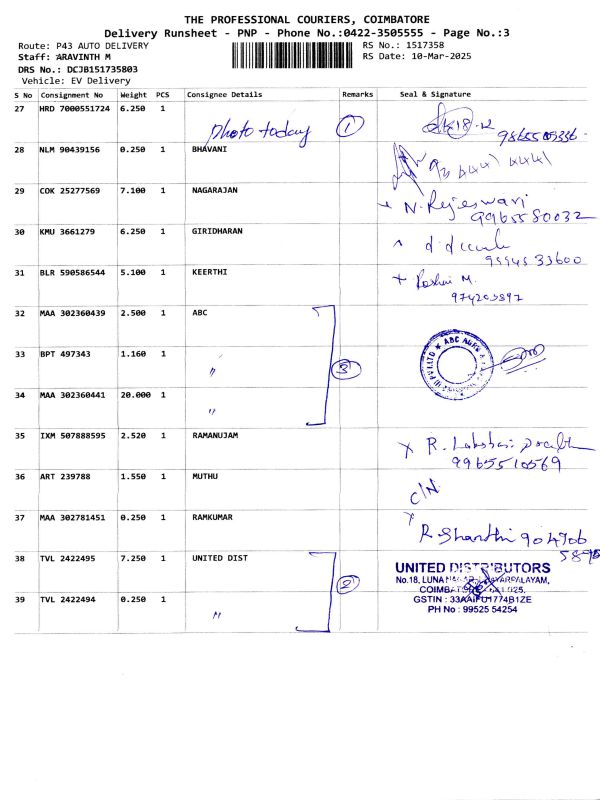 THE PROFESSIONAL COURIERS, COIMBATORE
Delivery Runsheet - PNP - Phone No.:0422-3505555 - Page No.:3
Route: P43 AUTO DELIVERY RS No.: 1517358
Staff: ARAVINTH M RS Date: 10-Mar-2025
DRS No.: DCJB151735803
Vehicle: EV Delivery
S No Consignment No Weight PCS Consignee Details Remarks Seal & Signature
27 HRD 7000551724 6.250 1 photo today 1
28 NLM 90439156 0.250 1 BHAVANI
29 COK 25277569 7.100 1 NAGARAJAN N. Rajeswari
9965580032
30 KMU 3661279 6.250 1 GIRIDHARAN
9594533600
31 BLR 590586544 5.100 1 KEERTHI
32 MAA 302360439 2.500 1 ABC
33 BPT 497343 1.160 1 " 3
34 MAA 302360441 20.000 1 "
35 IXM 507888595 2.520 1 RAMANUJAM
9965510569
36 ART 239788 1.550 1 MUTHU C/N
37 MAA 302781451 0.250 1 RAMKUMAR R Shanthi 904706
5895
38 TVL 2422495 7.250 1 UNITED DIST 2
UNITED DISTRIBUTORS
39 TVL 2422494 0.250 1 "
GSTIN : 33AAIFU1774B1ZE
PH No : 99525 54254